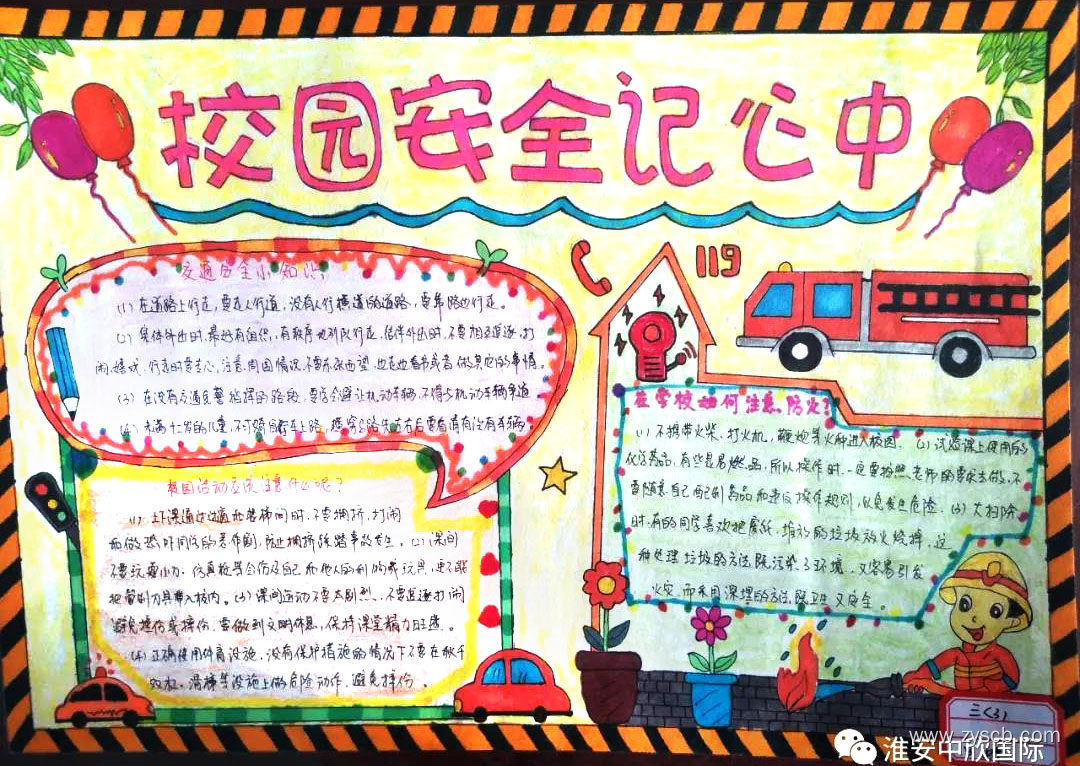 校园安全记心中
交通安全小知识
(1) 在道路上行走,要走人行道,没有人行横道的道路,要靠路边行走。
(2) 集体外出时,最好有组织,有秩序地列队行走,结伴外出时,不要相互追逐,打
闹、嬉戏,行走时要专心,注意周围情况,不要东张西望,
(3) 在没有交通民警指挥的路段,要学会避让机动车辆,不得与机动车辆争道。
(4) 未满十二岁的儿童,不可骑自行车上路,
校园活动应该注意什么呢?
(1) 上下课通过过道和楼梯间时,不要拥挤,打闹
和做恐吓同伴的恶作剧,防止拥挤踩踏事故发生。(2) 课间
不要玩耍小刀、仿真枪等会伤及自己和他人的利物或玩具,更不能
把管制刀具带入校内。(3) 课间运动不要太剧烈,不要追逐打闹
避免撞伤或摔伤,要做到文明休息,保持课堂精力旺盛。
(4) 正确使用体育设施,没有保护措施的情况下不要在秋千
双杠、滑梯等设施上做危险动作,避免摔伤。
119
在学校如何注意防火?
(1) 不携带火柴、打火机、鞭炮等火种进入校园。(2) 试验课上使用的
化学药品,有些是易燃品,所以操作时,一定要按照老师的要求去做,不
要随意自己配制药品和违反操作规则,以免发生危险。(3) 大扫除
时,有的同学喜欢把废纸、堆积的垃圾放火烧掉,这
种处理垃圾的方法既污染了环境,又容易引发
火灾,而采用深埋的方法,既卫生又安全。
三(3)
www.zyscb.com
淮安中欣国际